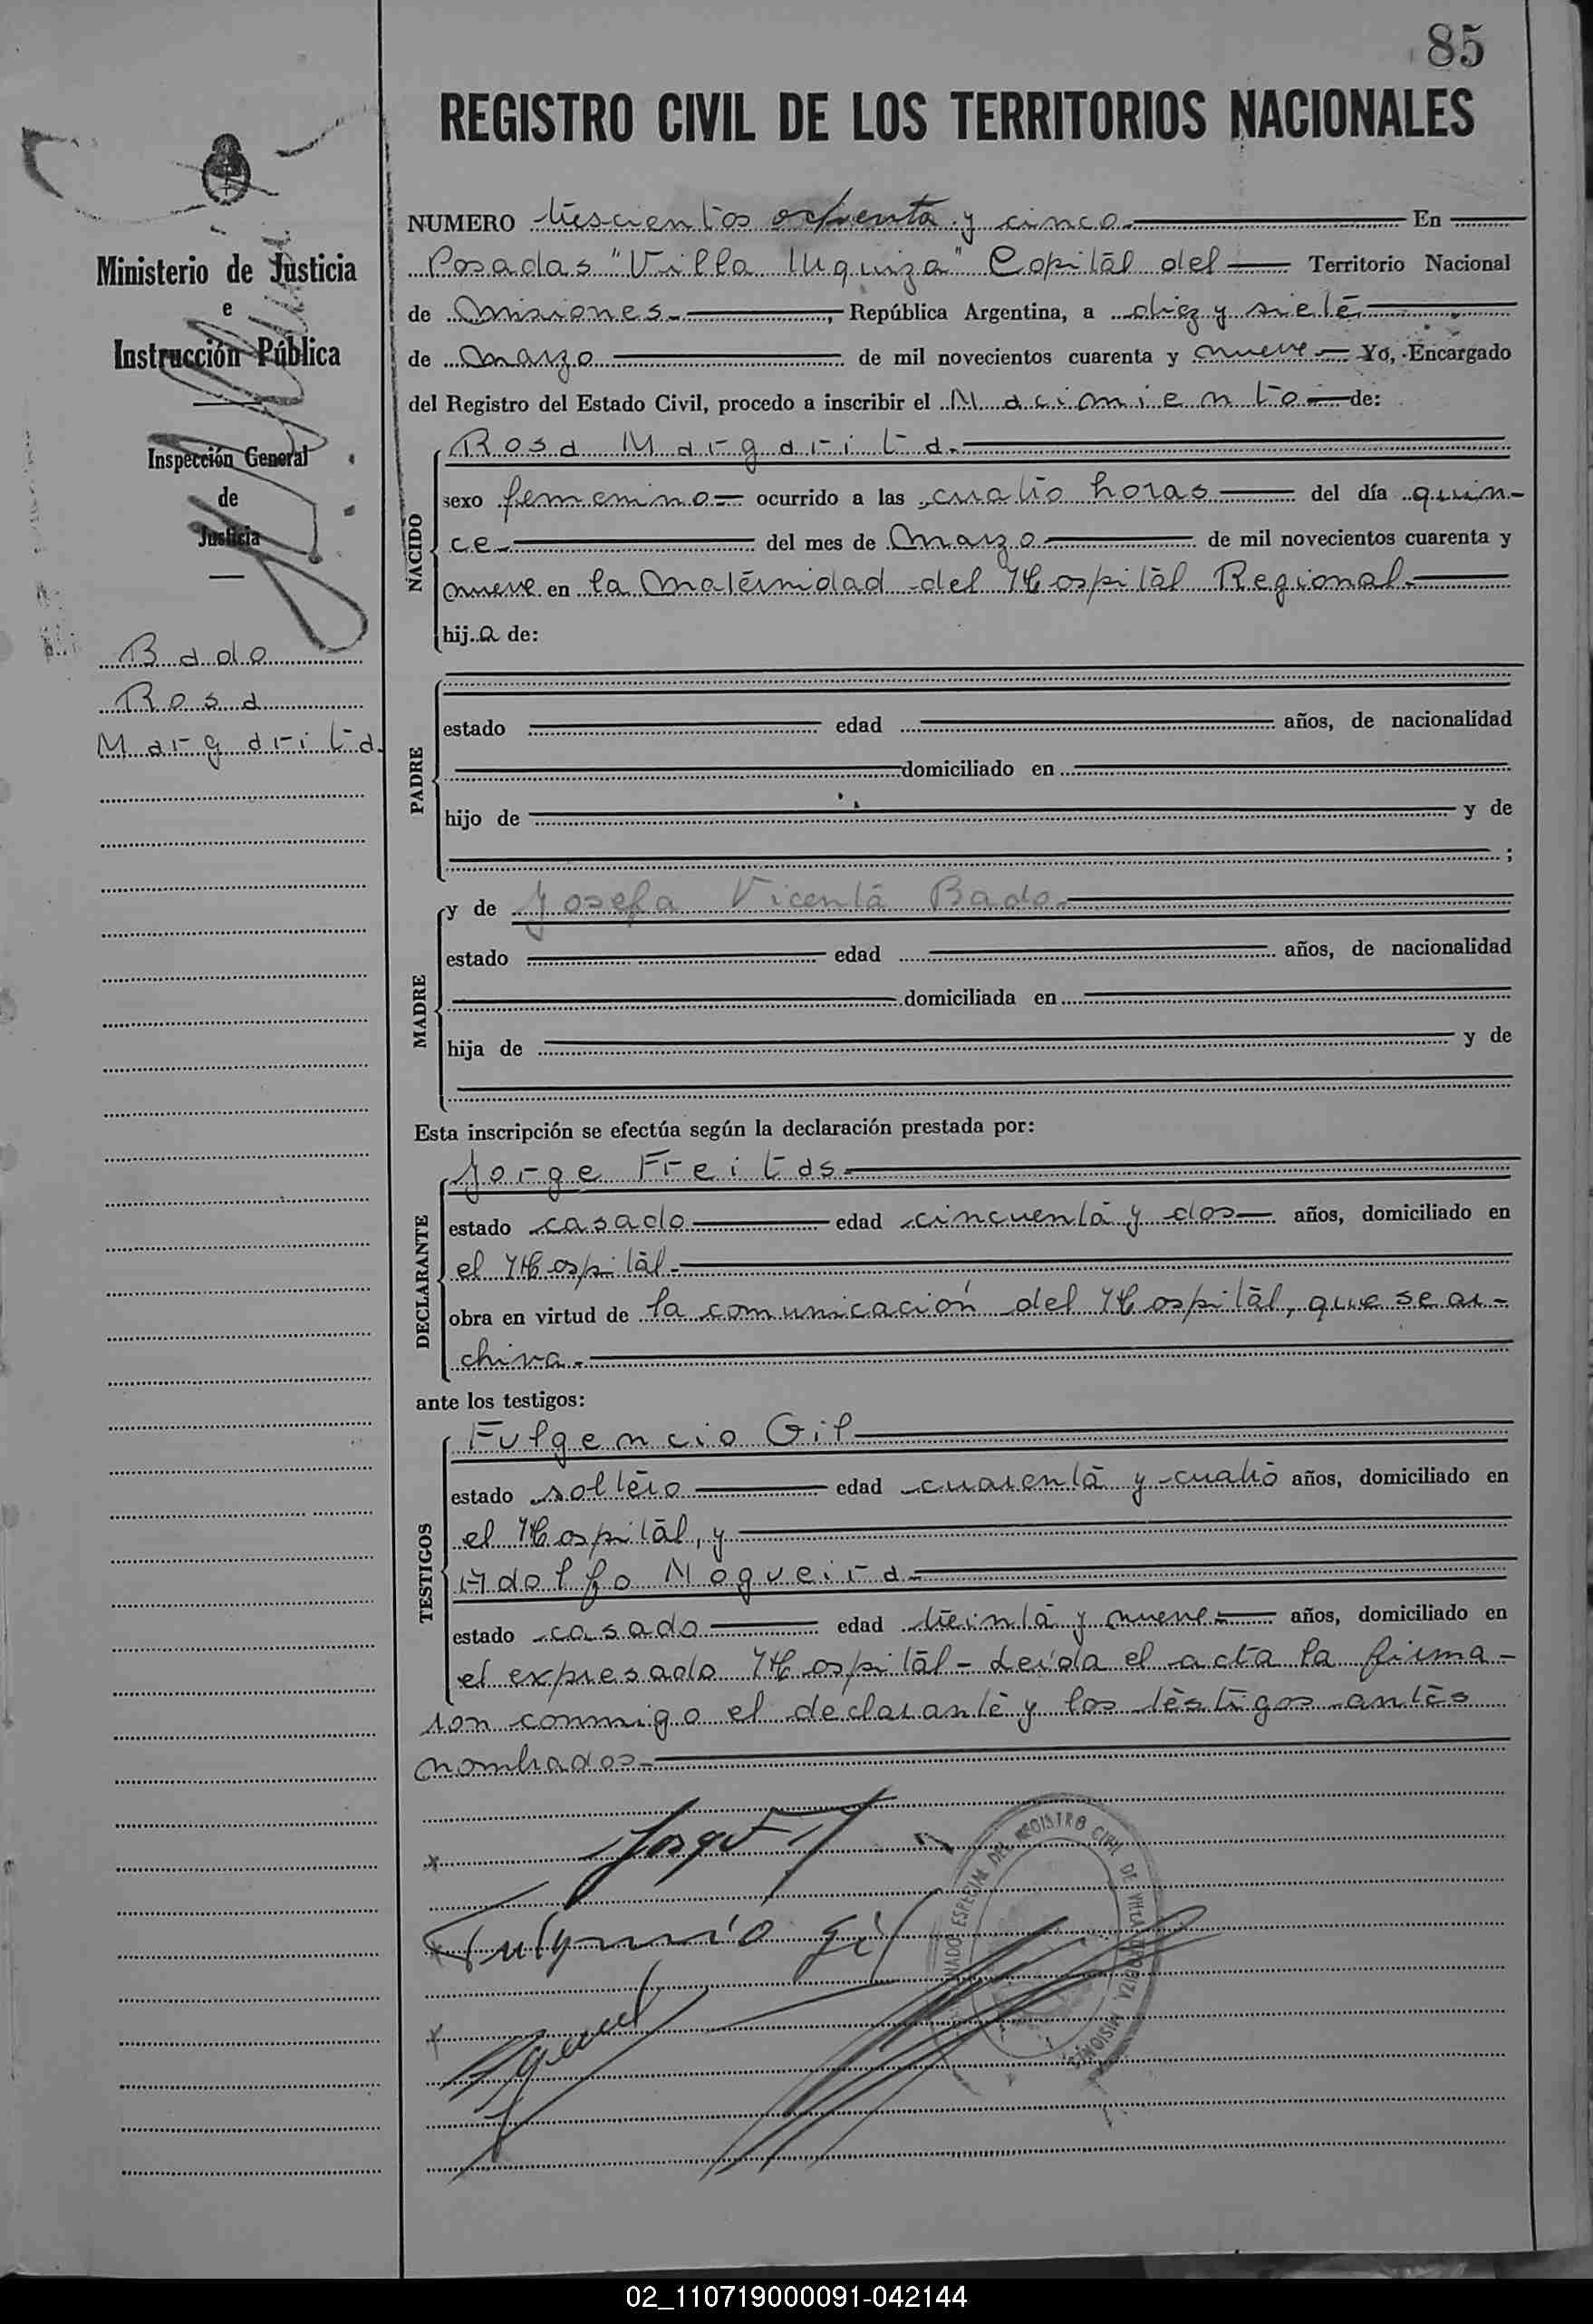 85
REGISTRO CIVIL DE LOS TERRITORIOS NACIONALES
Ministerio de Justicia
e
Instrucción Pública
Inspección General
de
Justicia
Bado
Rosa
Margarita.
NUMERO trescientos ochenta y cinco. En
Posadas "Villa Urquiza" Capital del Territorio Nacional
de Misiones.-, República Argentina, a diez y siete
de Marzo de mil novecientos cuarenta y nueve Yo, Encargado
del Registro del Estado Civil, procedo a inscribir el Nacimiento de:
NACIDO
Rosa Margarita.-
sexo femenino ocurrido a las cuatro horas del día quin-
ce- del mes de Marzo de mil novecientos cuarenta y
nueve en la Maternidad del Hospital Regional.-
hij a de:
PADRE
estado edad años, de nacionalidad
domiciliado en
hijo de y de
;
MADRE
y de Josefa Vicenta Bado.-
estado edad años, de nacionalidad
domiciliada en
hija de y de
Esta inscripción se efectúa según la declaración prestada por:
DECLARANTE
Jorge Freitas.-
estado casado edad cincuenta y dos años, domiciliado en
el Hospital.-
obra en virtud de la comunicación del Hospital, que se ar-
chiva.-
ante los testigos:
TESTIGOS
Fulgencio Gil
estado soltero edad cuarenta y cuatro años, domiciliado en
el Hospital, y
Adolfo Nogueira.-
estado casado edad treinta y nueve años, domiciliado en
el expresado Hospital- Leída el acta la firma-
ron conmigo el declarante y los testigos antes
nombrados.-
Fulgencio Gil
ESPECIAL DEL REGISTRO CIVIL DE VILLA URQUIZA MISIONES
02_110719000091-042144